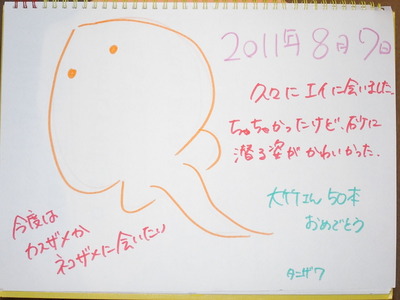 2011年8月7日
久々にエイに会いました。
ちっちゃかったけど、砂に
潜る姿がかわいかった。
今度は
カスザメか
ネコザメに会いたい
大竹さん50本
おめでとう
タニザワ